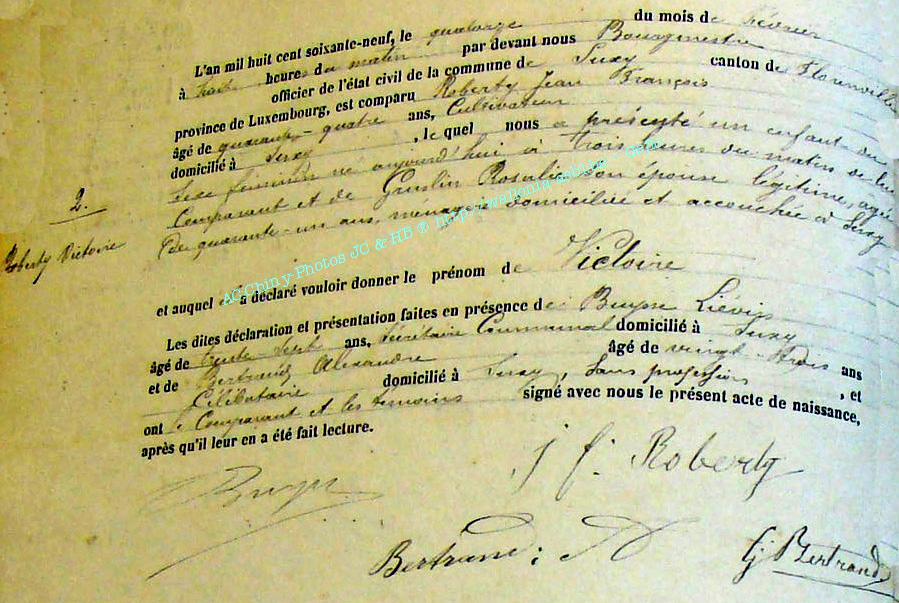 L'an mil huit cent soixante-neuf, le quatorze du mois de février
à huit heures du matin par devant nous Bourgmestre
officier de l'état civil de la commune de Suxy canton de Florenville
province de Luxembourg, est comparu Roberty Jean François
âgé de quarante-quatre ans, Cultivateur
domicilié à Suxy, lequel nous a présenté un enfant du
sexe féminin né aujourd'hui à trois heures du matin de lui
Comparant et de Rosalie son épouse légitime, agée
de quarante-un ans, ménagère domiciliée et accouchée à Suxy
2.
Roberty Victoire
ACChiny Photos JC & HB ®
et auquel il a déclaré vouloir donner le prénom de Victoire
Les dites déclaration et présentation faites en présence de Liévin
âgé de trente-sept ans, Sécrétaire Communal domicilié à Suxy
et de Bertrand Alexandre âgé de vingt-trois ans
Célibataire domicilié à Suxy, Sans profession, et
ont le Comparant et les témoins signé avec nous le présent acte de naissance,
après qu'il leur en a été fait lecture.
J f. Roberty
Bertrand
Bertrand